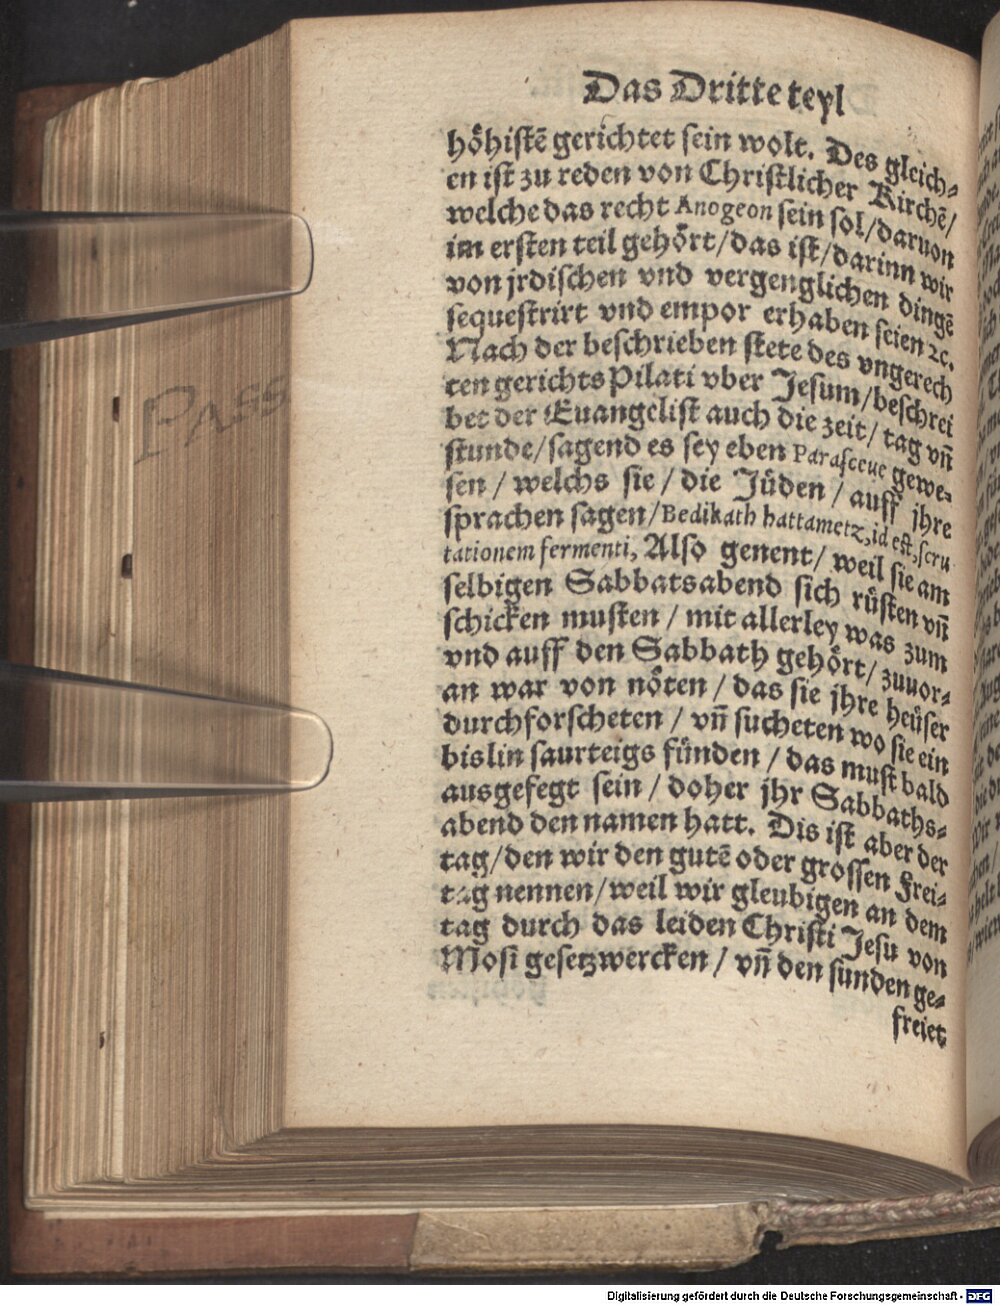 Das Dritte teyl
hoͤhiſtē gerichtet ſein wolt. Des gleich-
en iſt zu reden von Chriſtlicher Kirchē/
welche das recht Anogeon ſein ſol/daruon
im erſten teil gehoͤrt/das iſt/darinn wir
von jrdiſchen vnd vergenglichen dingē
ſequeſtrirt vnd empor erhaben ſeien ꝛc.
Nach der beſchrieben ſtete des vngerech
ten gerichts Pilati vber Jeſum/beſchrei
bet der Euangeliſt auch die zeit/ tag vn̄
ſtunde/ſagend es ſey eben Paraſceue gewe-
ſen / welchs ſie / die Juͤden / auff jhre
ſprachen ſagen/Bedikath hattametz, id eſt, ſcru
tationem fermenti, Alſo genent/ weil ſie am
ſelbigen Sabbatsabend ſich ruͤſten vn̄
ſchicken muſten / mit allerley was zum
vnd auff den Sabbath gehoͤrt/ zuuor-
an war von noͤten / das ſie jhre heuͤſer
durchforſcheten / vn̄ ſucheten wo ſie ein
bislin ſaurteigs fuͤnden / das muſt bald
ausgefegt ſein / doher jhr Sabbaths-
abend den namen hatt. Dis iſt aber der
tag/den wir den gutē oder groſſen Frei-
tag nennen/weil wir gleubigen an dem
tag durch das leiden Chriſti Jeſu von
Moſi geſetzwercken / vn̄ den ſunden ge-
freiet
PASS
Digitalisierung gefördert durch die Deutsche Forschungsgemeinschaft - DFG